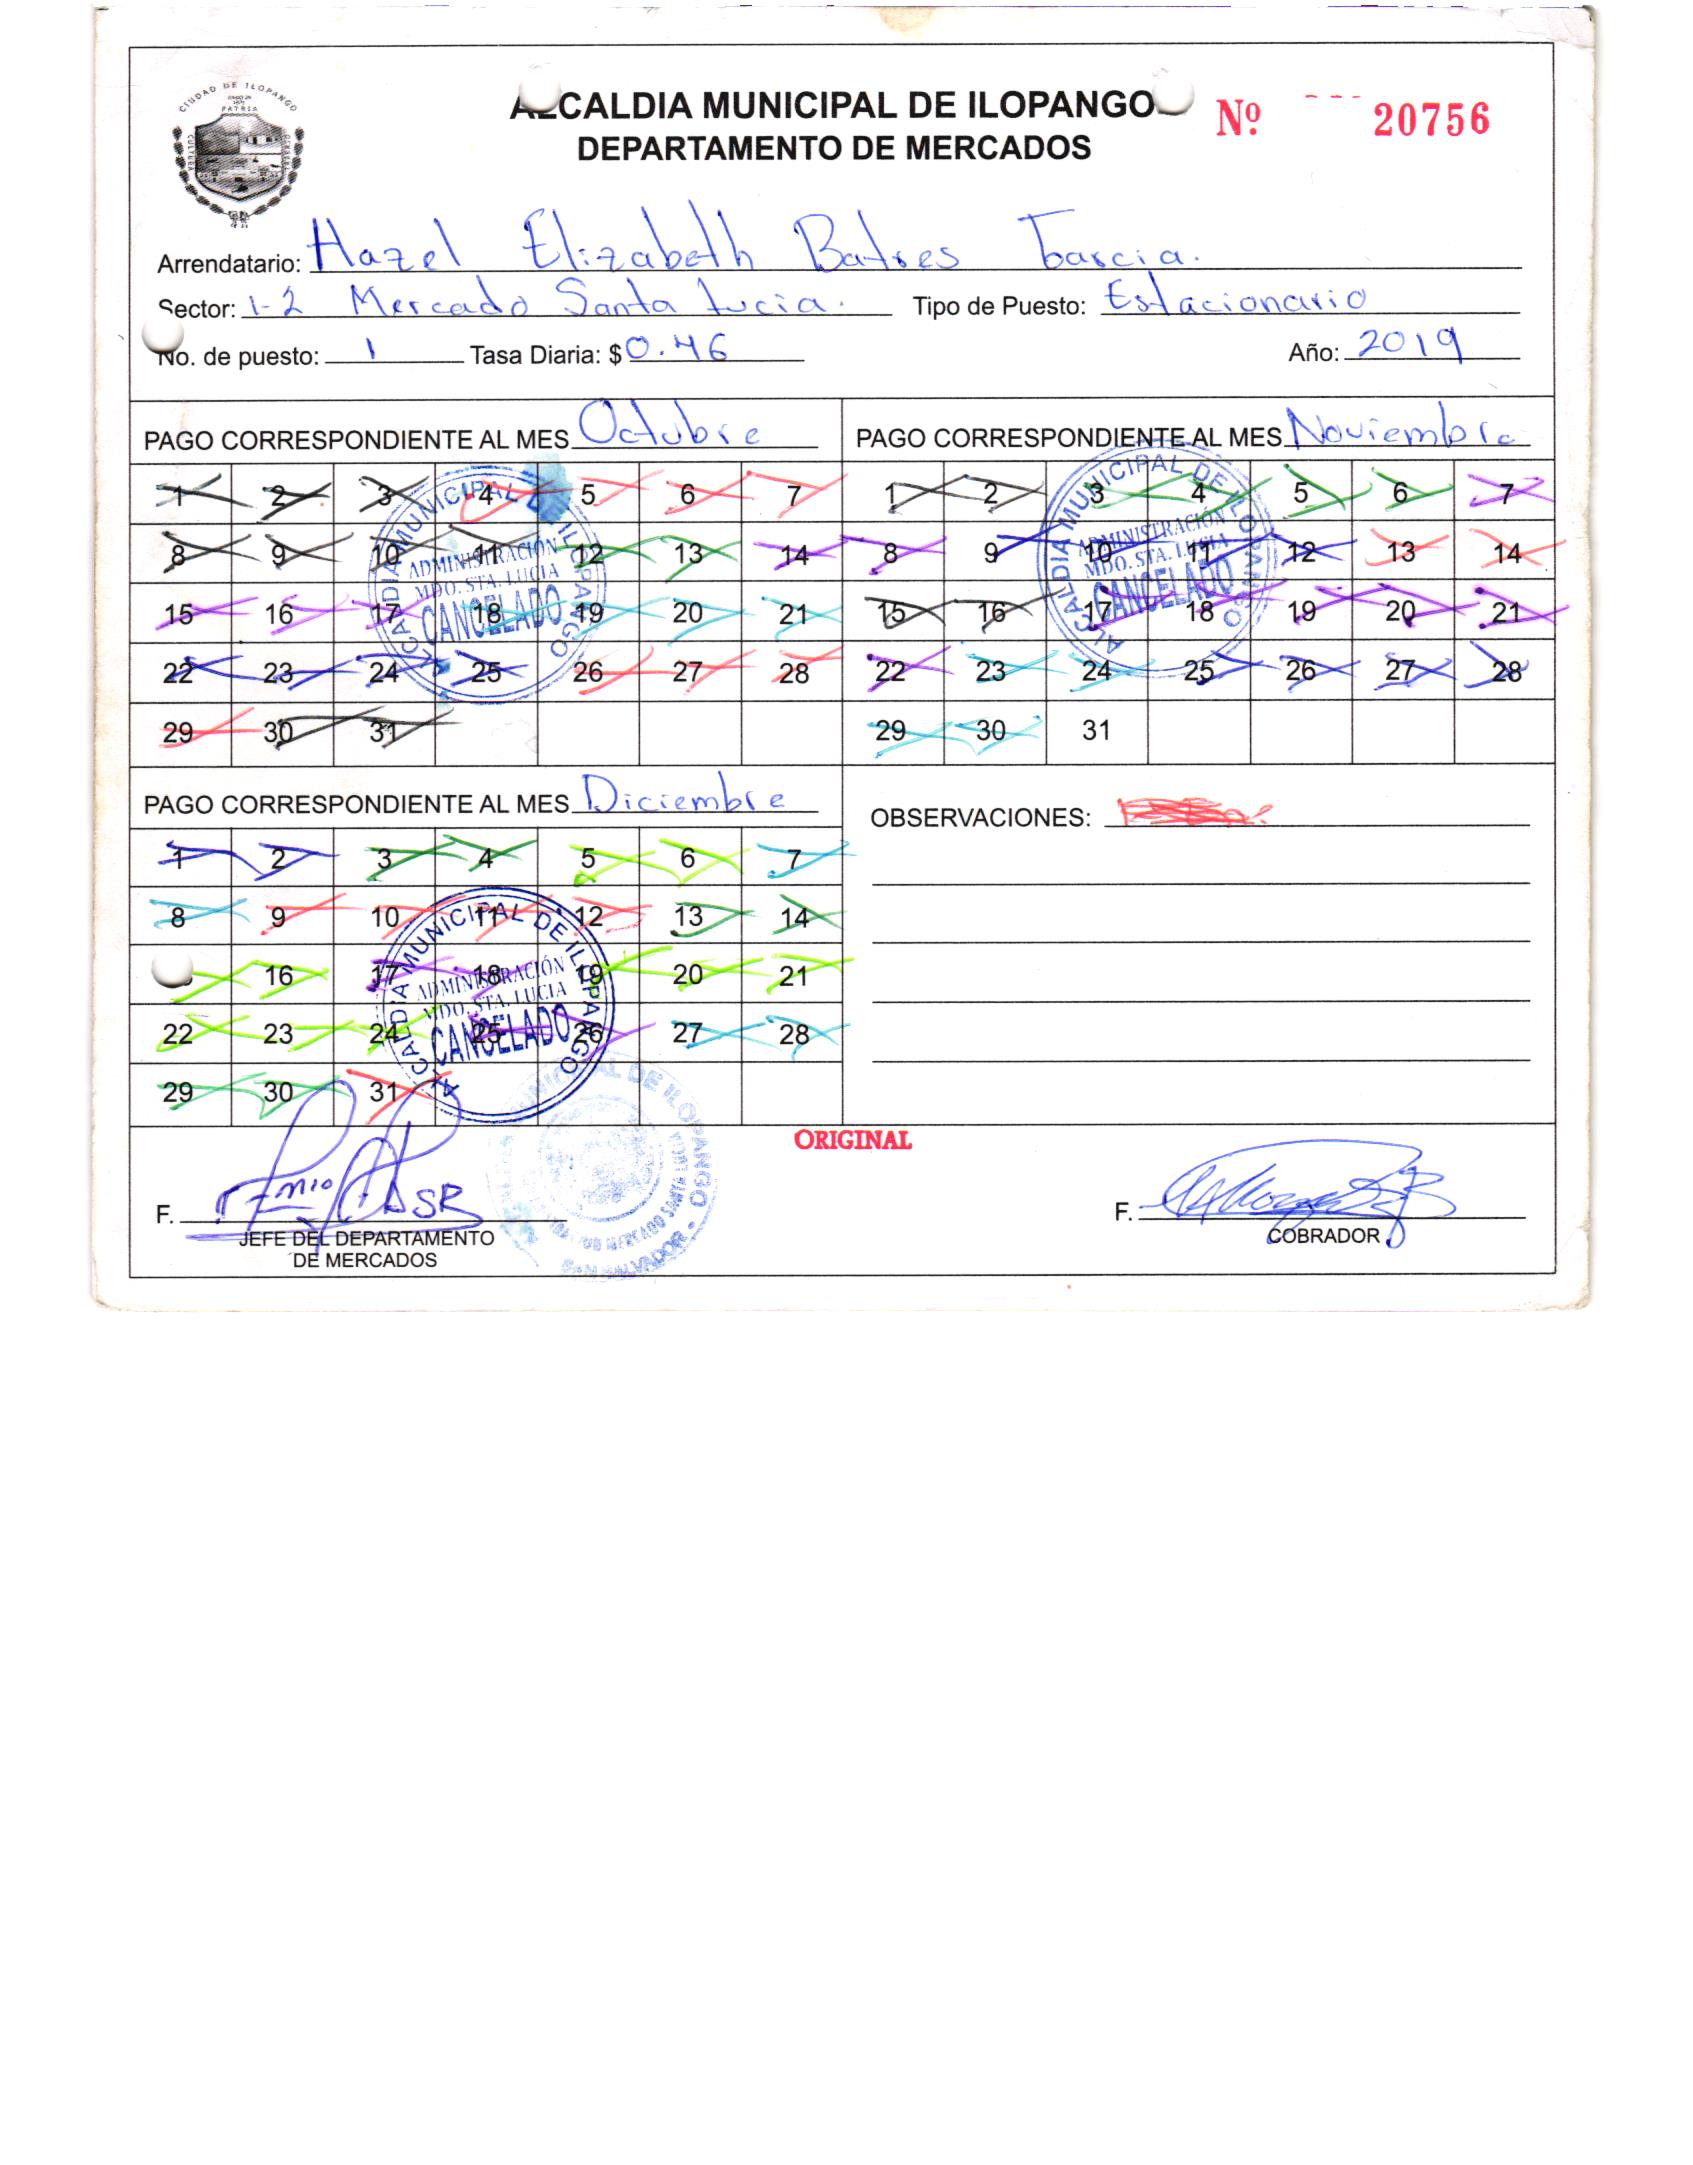 CIUDAD DE ILOPANGO
PATRIA
CULTURA
ALCALDIA MUNICIPAL DE ILOPANGO
DEPARTAMENTO DE MERCADOS
Nº 20756
Arrendatario: Hazel Elizabeth Batres Garcia.
Sector: 1-2 Mercado Santa Lucia. Tipo de Puesto: Estacionario
No. de puesto: 1 Tasa Diaria: $ 0.46 Año: 2019
PAGO CORRESPONDIENTE AL MES Octubre
1 2 3 4 5 6 7
8 9 10 11 12 13 14
15 16 17 18 19 20 21
22 23 24 25 26 27 28
29 30 31
ALCALDIA MUNICIPAL DE ILOPANGO
ADMINISTRACIÓN
MDO. STA. LUCIA
CANCELADO
PAGO CORRESPONDIENTE AL MES Noviembre
1 2 3 4 5 6 7
8 9 10 11 12 13 14
15 16 17 18 19 20 21
22 23 24 25 26 27 28
29 30 31
ALCALDIA MUNICIPAL DE ILOPANGO
ADMINISTRACIÓN
MDO. STA. LUCIA
CANCELADO
PAGO CORRESPONDIENTE AL MES Diciembre
1 2 3 4 5 6 7
8 9 10 11 12 13 14
16 17 18 19 20 21
22 23 24 25 26 27 28
29 30 31
ALCALDIA MUNICIPAL DE ILOPANGO
ADMINISTRACIÓN
MDO. STA. LUCIA
CANCELADO
OBSERVACIONES:
ORIGINAL
MUNICIPAL DE ILOPANGO
MERCADO SANTA LUCIA
SAN SALVADOR
F.
JEFE DEL DEPARTAMENTO
DE MERCADOS
F.
COBRADOR